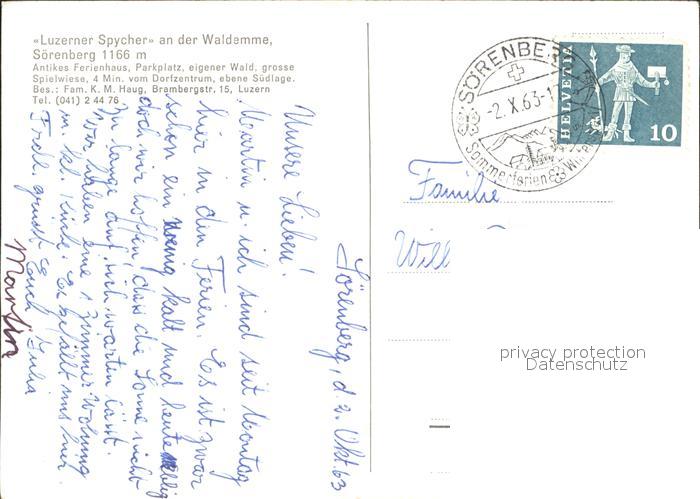 «Luzerner Spycher» an der Waldemme,
Sörenberg 1166 m
Antikes Ferienhaus, Parkplatz, eigener Wald, grosse
Spielwiese, 4 Min. vom Dorfzentrum, ebene Südlage.
Bes.: Fam. K. M. Haug, Brambergstr. 15, Luzern
Tel. (041) 2 44 76
Sörenberg, d. 2. Okt. 63
Unsere Lieben!
Martin u. ich sind seit Montag
hier in den Ferien. Es ist zwar
schon ein wenig kalt und heute neblig
doch wir hoffen, dass die Sonne nicht
zu lange auf sich warten lässt.
Wir haben eine 1 Zimmer Wohnung
m. kl. Küche. Es gefällt uns hier.
Frdl. grüsst Euch Julia
Martin
SÖRENBERG
-2.X.63-1
Sommerferien
HELVETIA
10
Familie
Will
privacy protection
Datenschutz